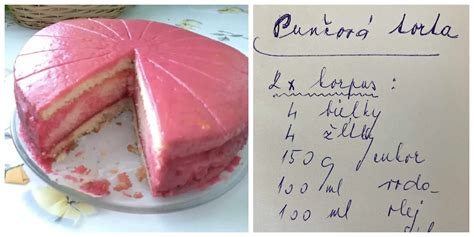 Punčová torta
2x korpus:
4 bielky
4 žĺtky
150 g cukor
100 ml vodo
100 ml olej